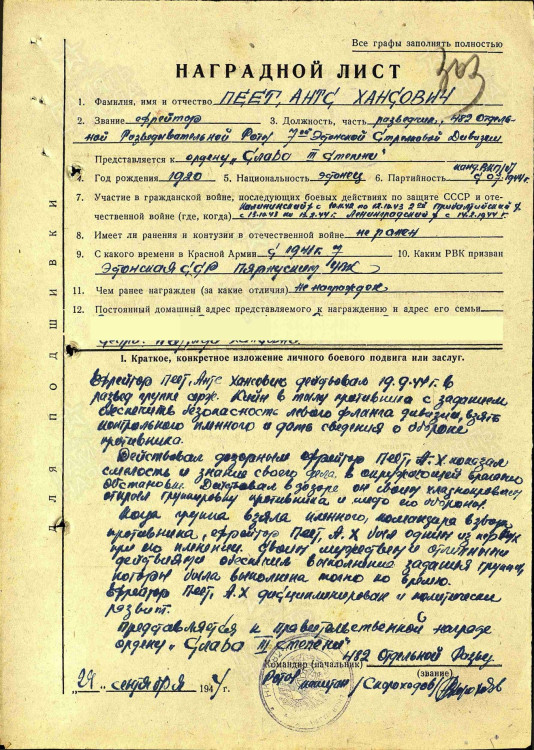 Все графы заполнять полностью
303
НАГРАДНОЙ ЛИСТ
1. Фамилия, имя и отчество ПЕЕТ, АНТС ХАНСОВИЧ
2. Звание ефрейтор 3. Должность, часть разведчик, 482 Отдель-
ной Разведывательной Роты 7ой Эстонской Стрелковой Дивизии
Представляется к ордену „Слава III степени"
4. Год рождения 1920 5. Национальность эстонец 6. Партийность канд. ВКП(б) с 07.1944г.
7. Участие в гражданской войне, последующих боевых действиях по защите СССР и оте-
чественной войне (где, когда)
Ленинградский ф с 14.2.44 г.
8. Имеет ли ранения и контузии в отечественной войне не ранен
9. С какого времени в Красной Армии с 1941 г. 10. Каким РВК призван
Эстонская ССР Пярнуским УВК
11. Чем ранее награжден (за какие отличия) не награжден
12. Постоянный домашный адрес представляемого к награждению и адрес его семьи
I. Краткое, конкретное изложение личного боевого подвига или заслуг.
Ефрейтор Пеет, Антс Хансович действовал 19.9.44г. в
развед группе серж. Кийн в тылу противника с заданием
обеспечить безопасность левого фланга дивизии, взять
контрольного пленного и дать сведения о обороне
противника.
Действовал дозорным ефрейтор Пеет, А.Х показал
смелость и знания своего дела, в окружающей
обстановке. Действовал в дозоре он своим хладнокровием
открыл группировку противника и место его обороны.
Когда группа взяла пленного, командира взвода
противника, ефрейтор Пеет, А.Х был одним из первых
при его пленении. Своим мужеством и отличными
действиями обеспечил выполнение задания группы,
которы была выполнена точно во время.
Ефрейтор Пеет, А.Х дисциплинирован и политически
развит.
Представляется к правительственной награде
ордену „Слава III степени"
Командир (начальник) 482 Отдельной Развед
(звание)
Роты капитан /Скороходов/
„29" сентября 1944 г.
ДЛЯ ПОДШИВКИ